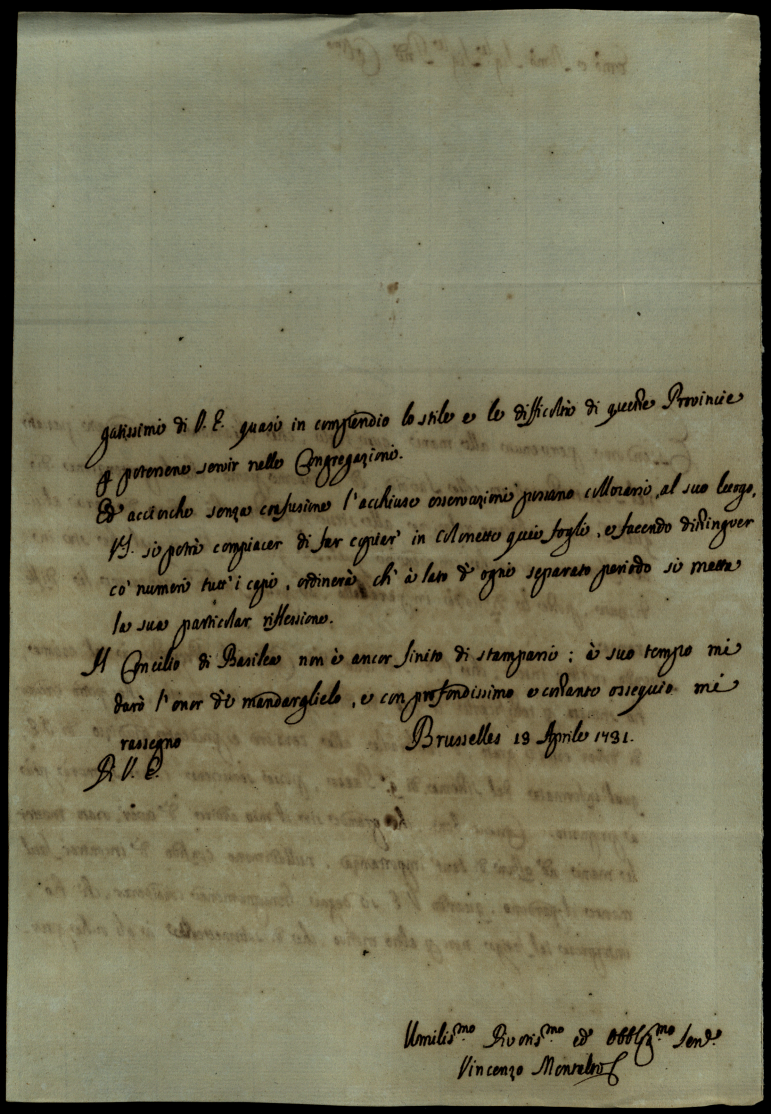 gatissimi di V. E. quasi in compendio lo stile e le difficoltà di queste Provincie
p potersene servir nelle Congregazioni.
Ed acciocche senza confusione l'acchiuse osservazioni possano collocarsi al suo luogo,
V.E. si potrà compiacer di far copiar' in colonette quei fogli, e facendo distinguer
co' numeri tutt'i capi, ordinerà, ch' à lato d' ogni separato periodo si metta
la sua particolar riflessione.
Il Concilio di Basilea non è ancor finito di stamparsi; à suo tempo mi
darò l'onor di mandarglielo, e con profondissimo e costante ossequio mi
rassegno Brusselles 13 Aprile 1731.
Di V. E.
Umilis.mo Divotis.mo ed Obblig.mo Serv.e
Vincenzo Montalto